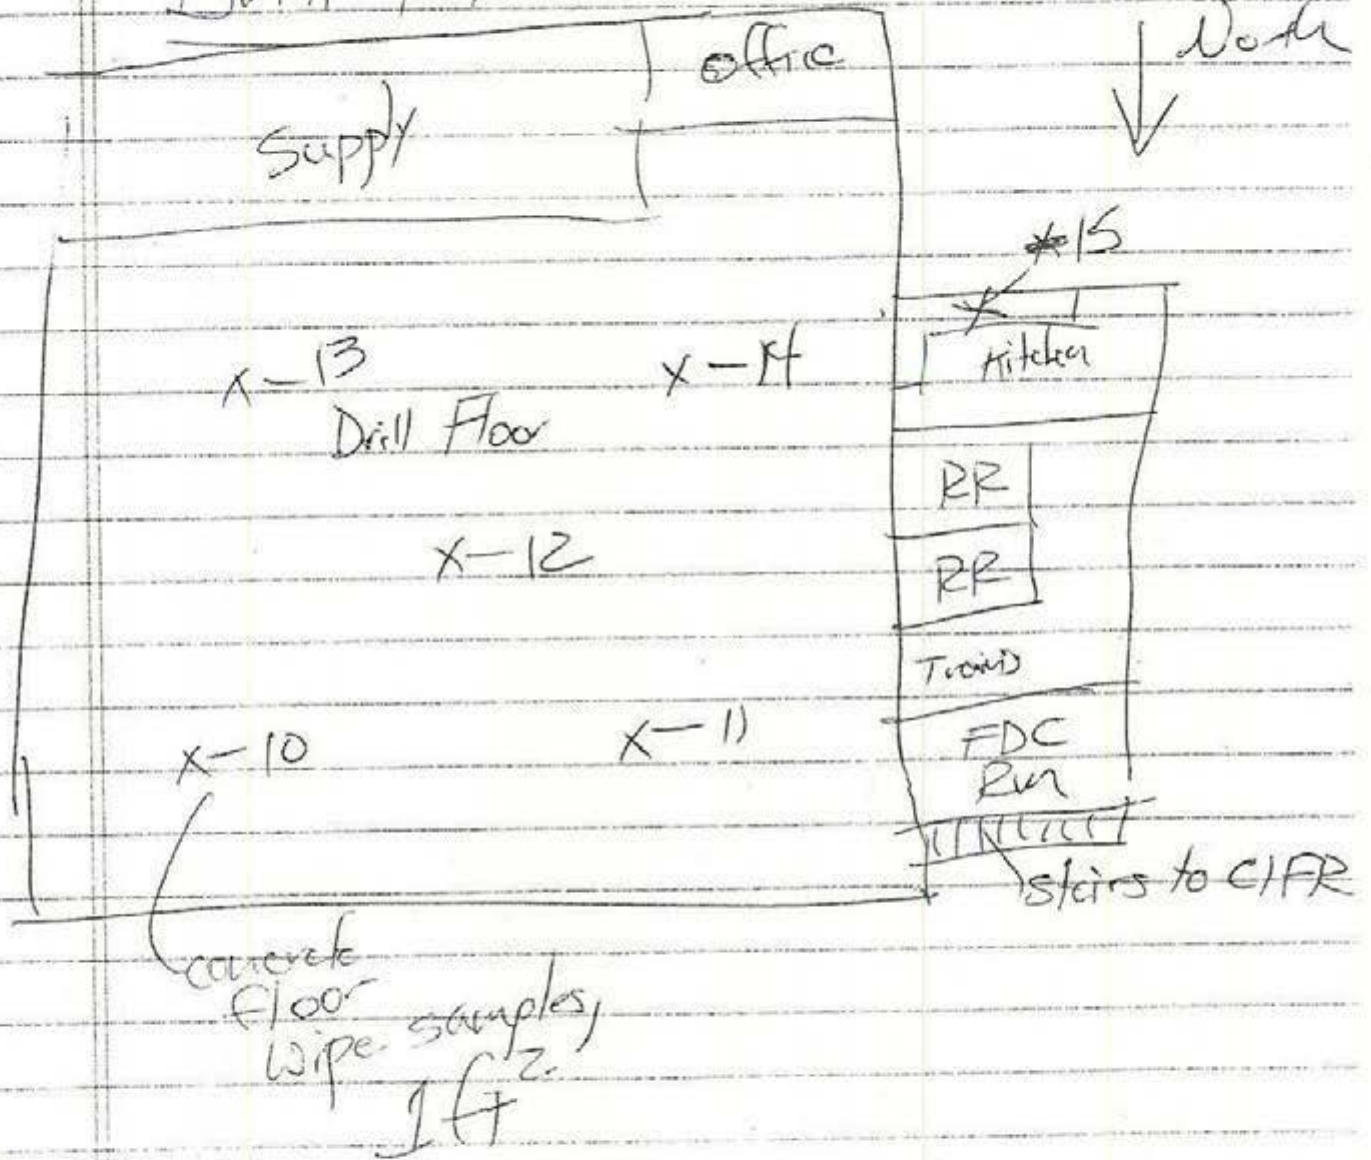 office
North
Supply
x 15
x
Kitchen
x-13
x-14
Drill Floor
RR
x-12
RR
x-10
x-11
FDC
Rm
stairs to CIFR
concrete
floor
wipe samples,
1 ft²